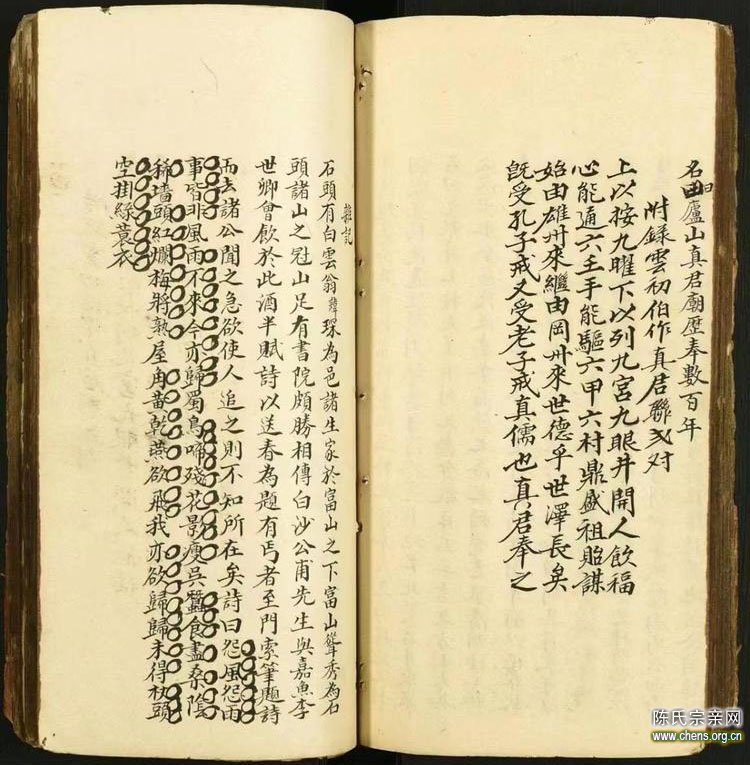 名曰廬山真君廟歷奉數百年
附錄雲初伯作真君聯弍对
上以按九曜下以列九宮九眼井開人飲福
心能通六壬手能驅六甲六村鼎盛祖貽謀
始由雄州來繼由岡州來世德乎世澤長矣
既受孔子戒又受老子戒真儒也真君奉之
雜記
石頭有白雲翁琛為邑諸生家於富山之下富山聳秀為石
頭諸山之冠山足有書院頗勝相傳白沙公甫先生與嘉魚李
世卿會飲於此酒半賦詩以送春為題有丐者至門索筆題詩
而去諸公聞之急欲使人追之則不知所在矣詩曰怨風怨雨
事皆非風雨不來今亦歸蜀鳥啼殘花影瘦吳蠶食盡桑陰
稀墻頭紅爛梅將熟屋角黃乾燕欲飛我亦欲歸歸未得杖頭
空掛綠蓑衣
陈氏宗亲网
www.chens.org.cn